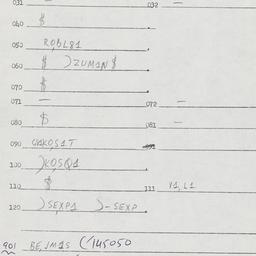 031 — 032 —
040 $
050 ROBL81
060 $ )ZUMAN $
070 $
071 — 072 —
080 $ 081 —
090 WAKOSAT 091
100 )KOSQA
110 $ 111 VA, LA
120 )SEXPA )-SEXP
901 BE, JMAS (145050